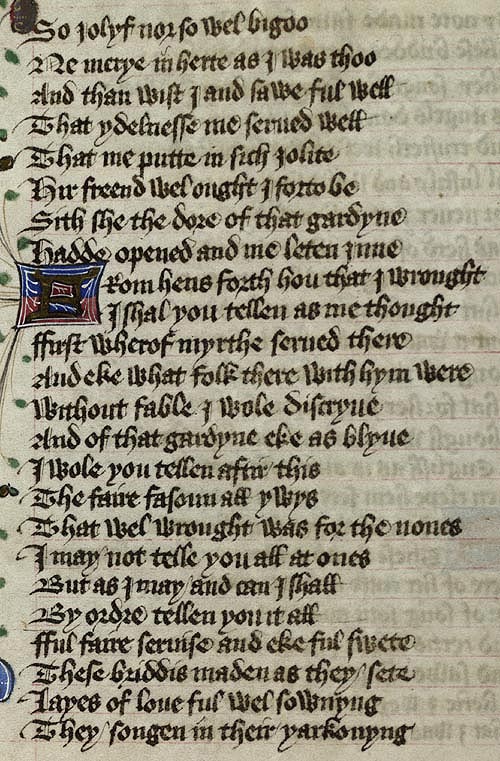 So iolyf nor so wel bigoo
Ne merye in herte as I was thoo
And than wist I and sawe ful well
That ydelnesse me serued well
That me putte in sich iolite
Hir freend wel ought I forto be
Sith she the dore of that gardyne
Hadde opened and me leten inne
From hens forth hou that I wrought
I shal you tellen as me thought
ffirst wherof myrthe serued there
And eke what folk there with hym were
Without fable I wole discryue
And of that gardyne eke as blyue
I wole you tellen aftir this
The faire fasoun all ywys
That wel wrought was for the nones
I may not telle you all at ones
But as I may and can I shall
By ordre tellen you it all
fful faire seruise and eke ful swete
These briddis maden as they sete
Layes of loue ful wel sownyng
They songen in their yarkonyng